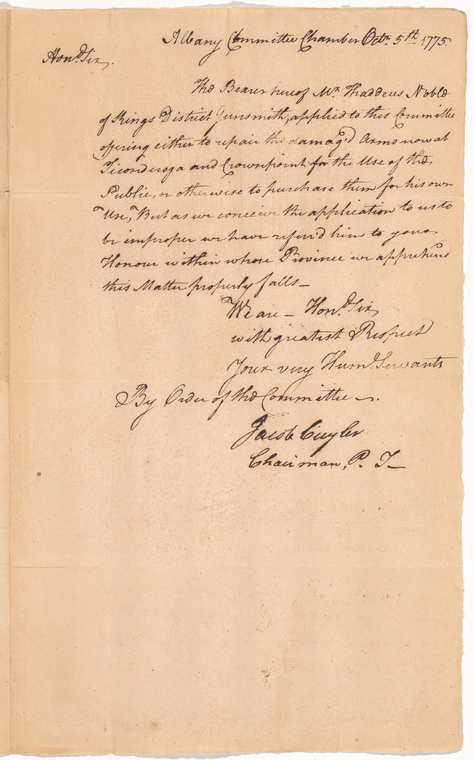 Albany Committee Chamber Octr. 5th. 1775.
Honble. Sir,
The Bearer hereof Mr. Thaddeus Noble
of Kings District Gunsmith, applied to this Committee
offering either to repair the damag'd Arms now at
Ticonderoga and Crownpoint for the Use of the
Public, or otherwise to purchase them for his own
Use, But as we conceive the application to us to
be improper we have referr'd him to your
Honour within whose Province we apprehend
this Matter properly falls—
We are — Honble. Sir
with greatest Respect
Your very Humle. Servants
By Order of the Committee —.
Jacob Cuyler
Chairman, P. T—